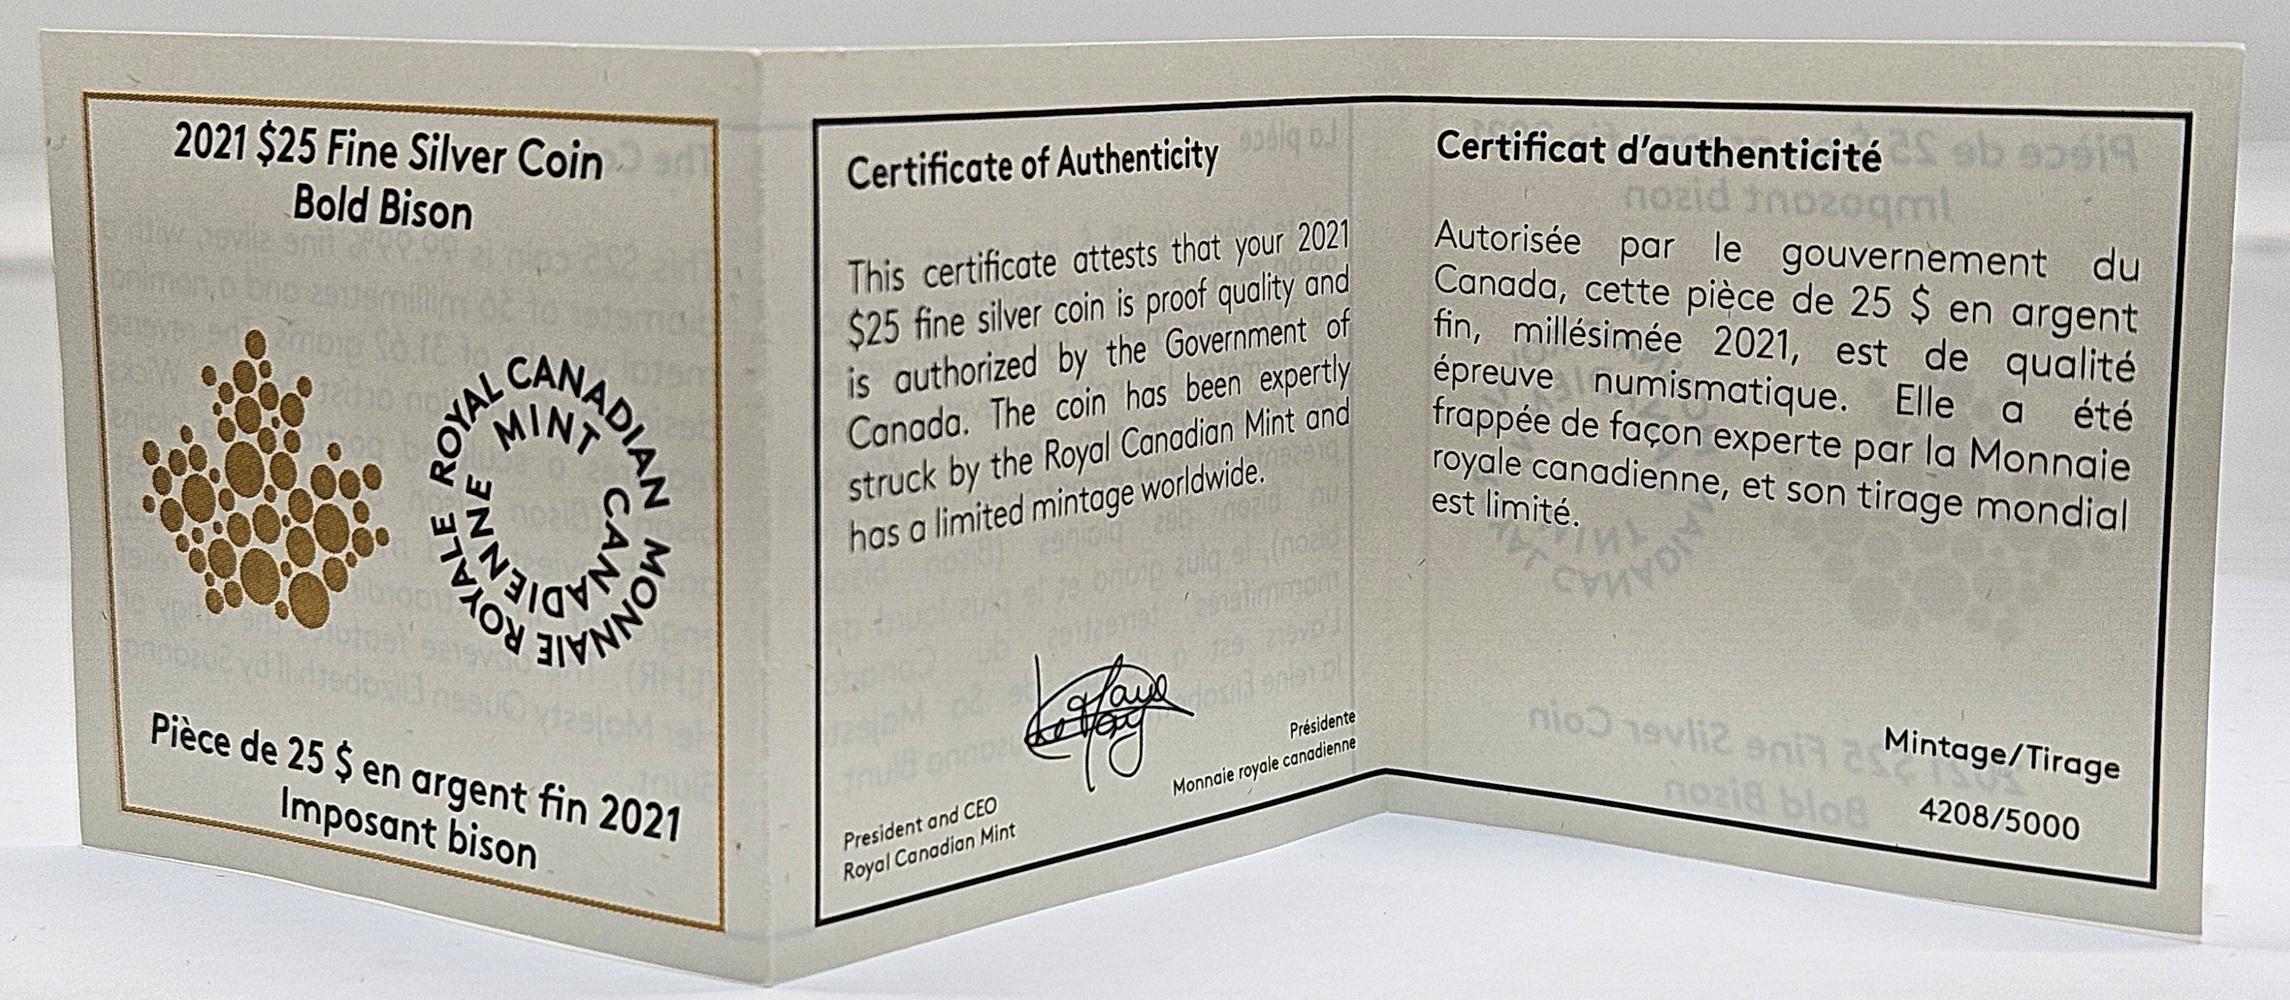 2021 $25 Fine Silver Coin
Bold Bison
ROYAL CANADIAN MINT
MONNAIE ROYALE CANADIENNE
Pièce de 25 $ en argent fin 2021
Imposant bison
Certificate of Authenticity
This certificate attests that your 2021
$25 fine silver coin is proof quality and
is authorized by the Government of
Canada. The coin has been expertly
struck by the Royal Canadian Mint and
has a limited mintage worldwide.
President and CEO
Royal Canadian Mint
Présidente
Monnaie royale canadienne
Certificat d'authenticité
Autorisée par le gouvernement du
Canada, cette pièce de 25 $ en argent
fin, millésimée 2021, est de qualité
épreuve numismatique. Elle a été
frappée de façon experte par la Monnaie
royale canadienne, et son tirage mondial
est limité.
Mintage/Tirage
4208/5000